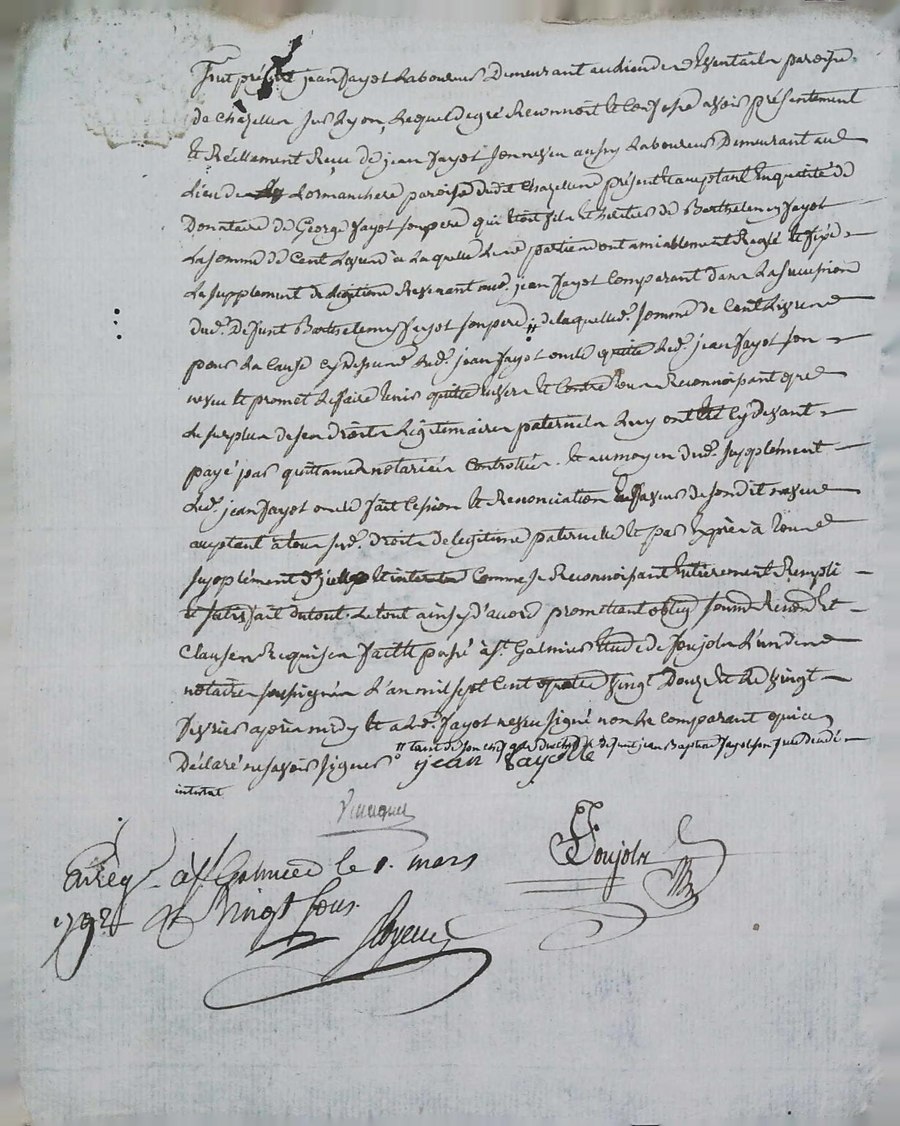 Fut présent jean fayot Laboureur Demeurant au lieu de paroisse
de Chazelles sur Lyon, Lequel de gré Reconnoit et Confesse avoir présentement
et Réellement Reçu de jean fayot son neveu aussy Laboureur Demeurant au
Lieu de Lormanchere paroisse dudit Chazelles présent & acceptant En qualité de
Donataire de George fayot son pere qui étoit fils et héritier de Barthelemy fayot
La somme de Cent Livres à Laquelle Les parties ont amiablement Reglé et fixé
Le supplement de Légitime Revenant aud. jean fayot Comparant dans La succession
dud. Defunt Barthelemy fayot son pere ; // de laquelle d. somme de Cent Livres
pour La Cause Cy dessus Led. jean fayot oncle quitte Led. jean fayot son
neveu et promet Le faire tenir quitte envers et Contre tous Reconnoissant que
Le surplus de ses droits Légitimaires paternels Luy ont été Cy devant
payé par quittances notariées Controllées. et au moyen dud. supplément
Led. jean fayot oncle fait Cession et Renonciation En faveur de son dit neveu
acceptant à tous sesd. droits de legitime paternelle et par Exprès à tous
supplément d'icelle Comme se Reconnoissant Entièrement Rempli
et satisfait du tout. Le tout ainsy d'acord promettant oblig soum Renon Et
Clauses Requises fait & passé à St. Galmier Etude de Foujols L'un des
notaires soussignés L'an mil sept Cent quatre vingt Douze et Le vingt
fevrier après midy et a Led. fayot neveu signé non Le comparant qui a
Déclaré ne savoir signer // tant de son chef que du chef de defunt jean Baptiste fayot son frere decedé
intestat
jean fayolle
Foujols
Enreg. à St Galmier le 1. mars
1792 Rt Vingt sous.